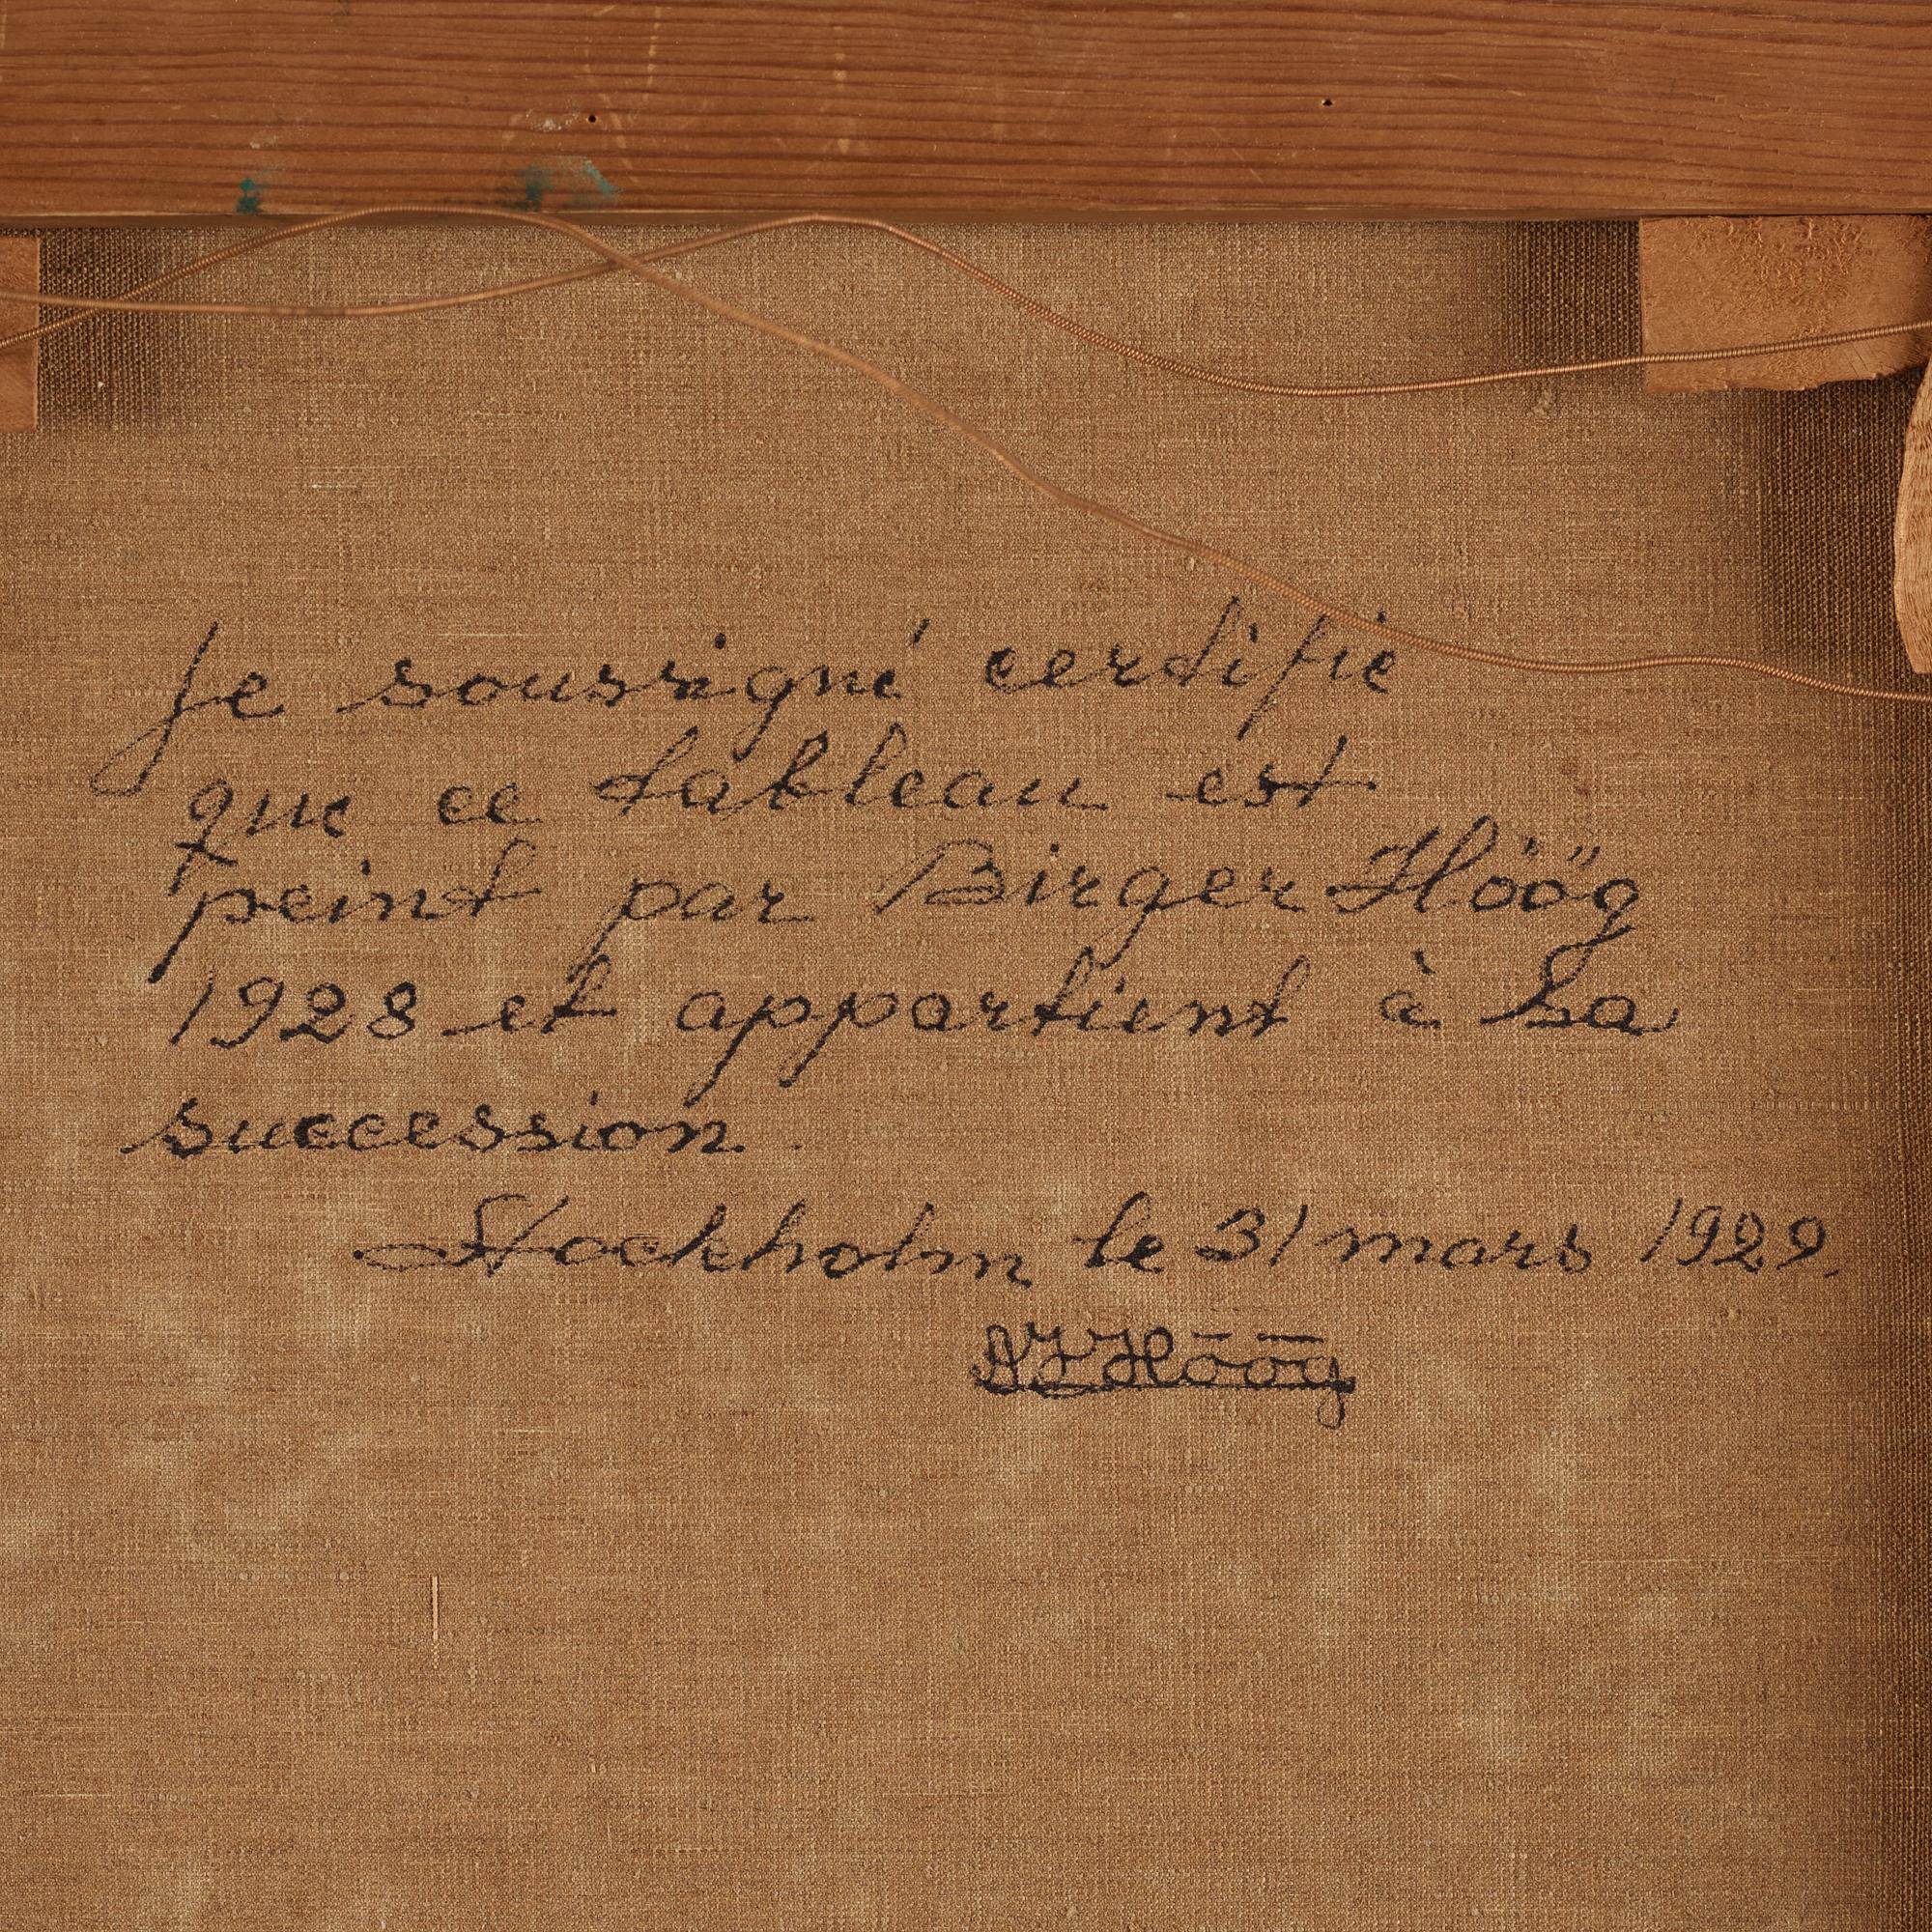 Je soussigné certifie
que ce tableau est
peint par Birger Höög
1928 et appartient à sa
succession.
Stockholm le 31 mars 1929.
Höög